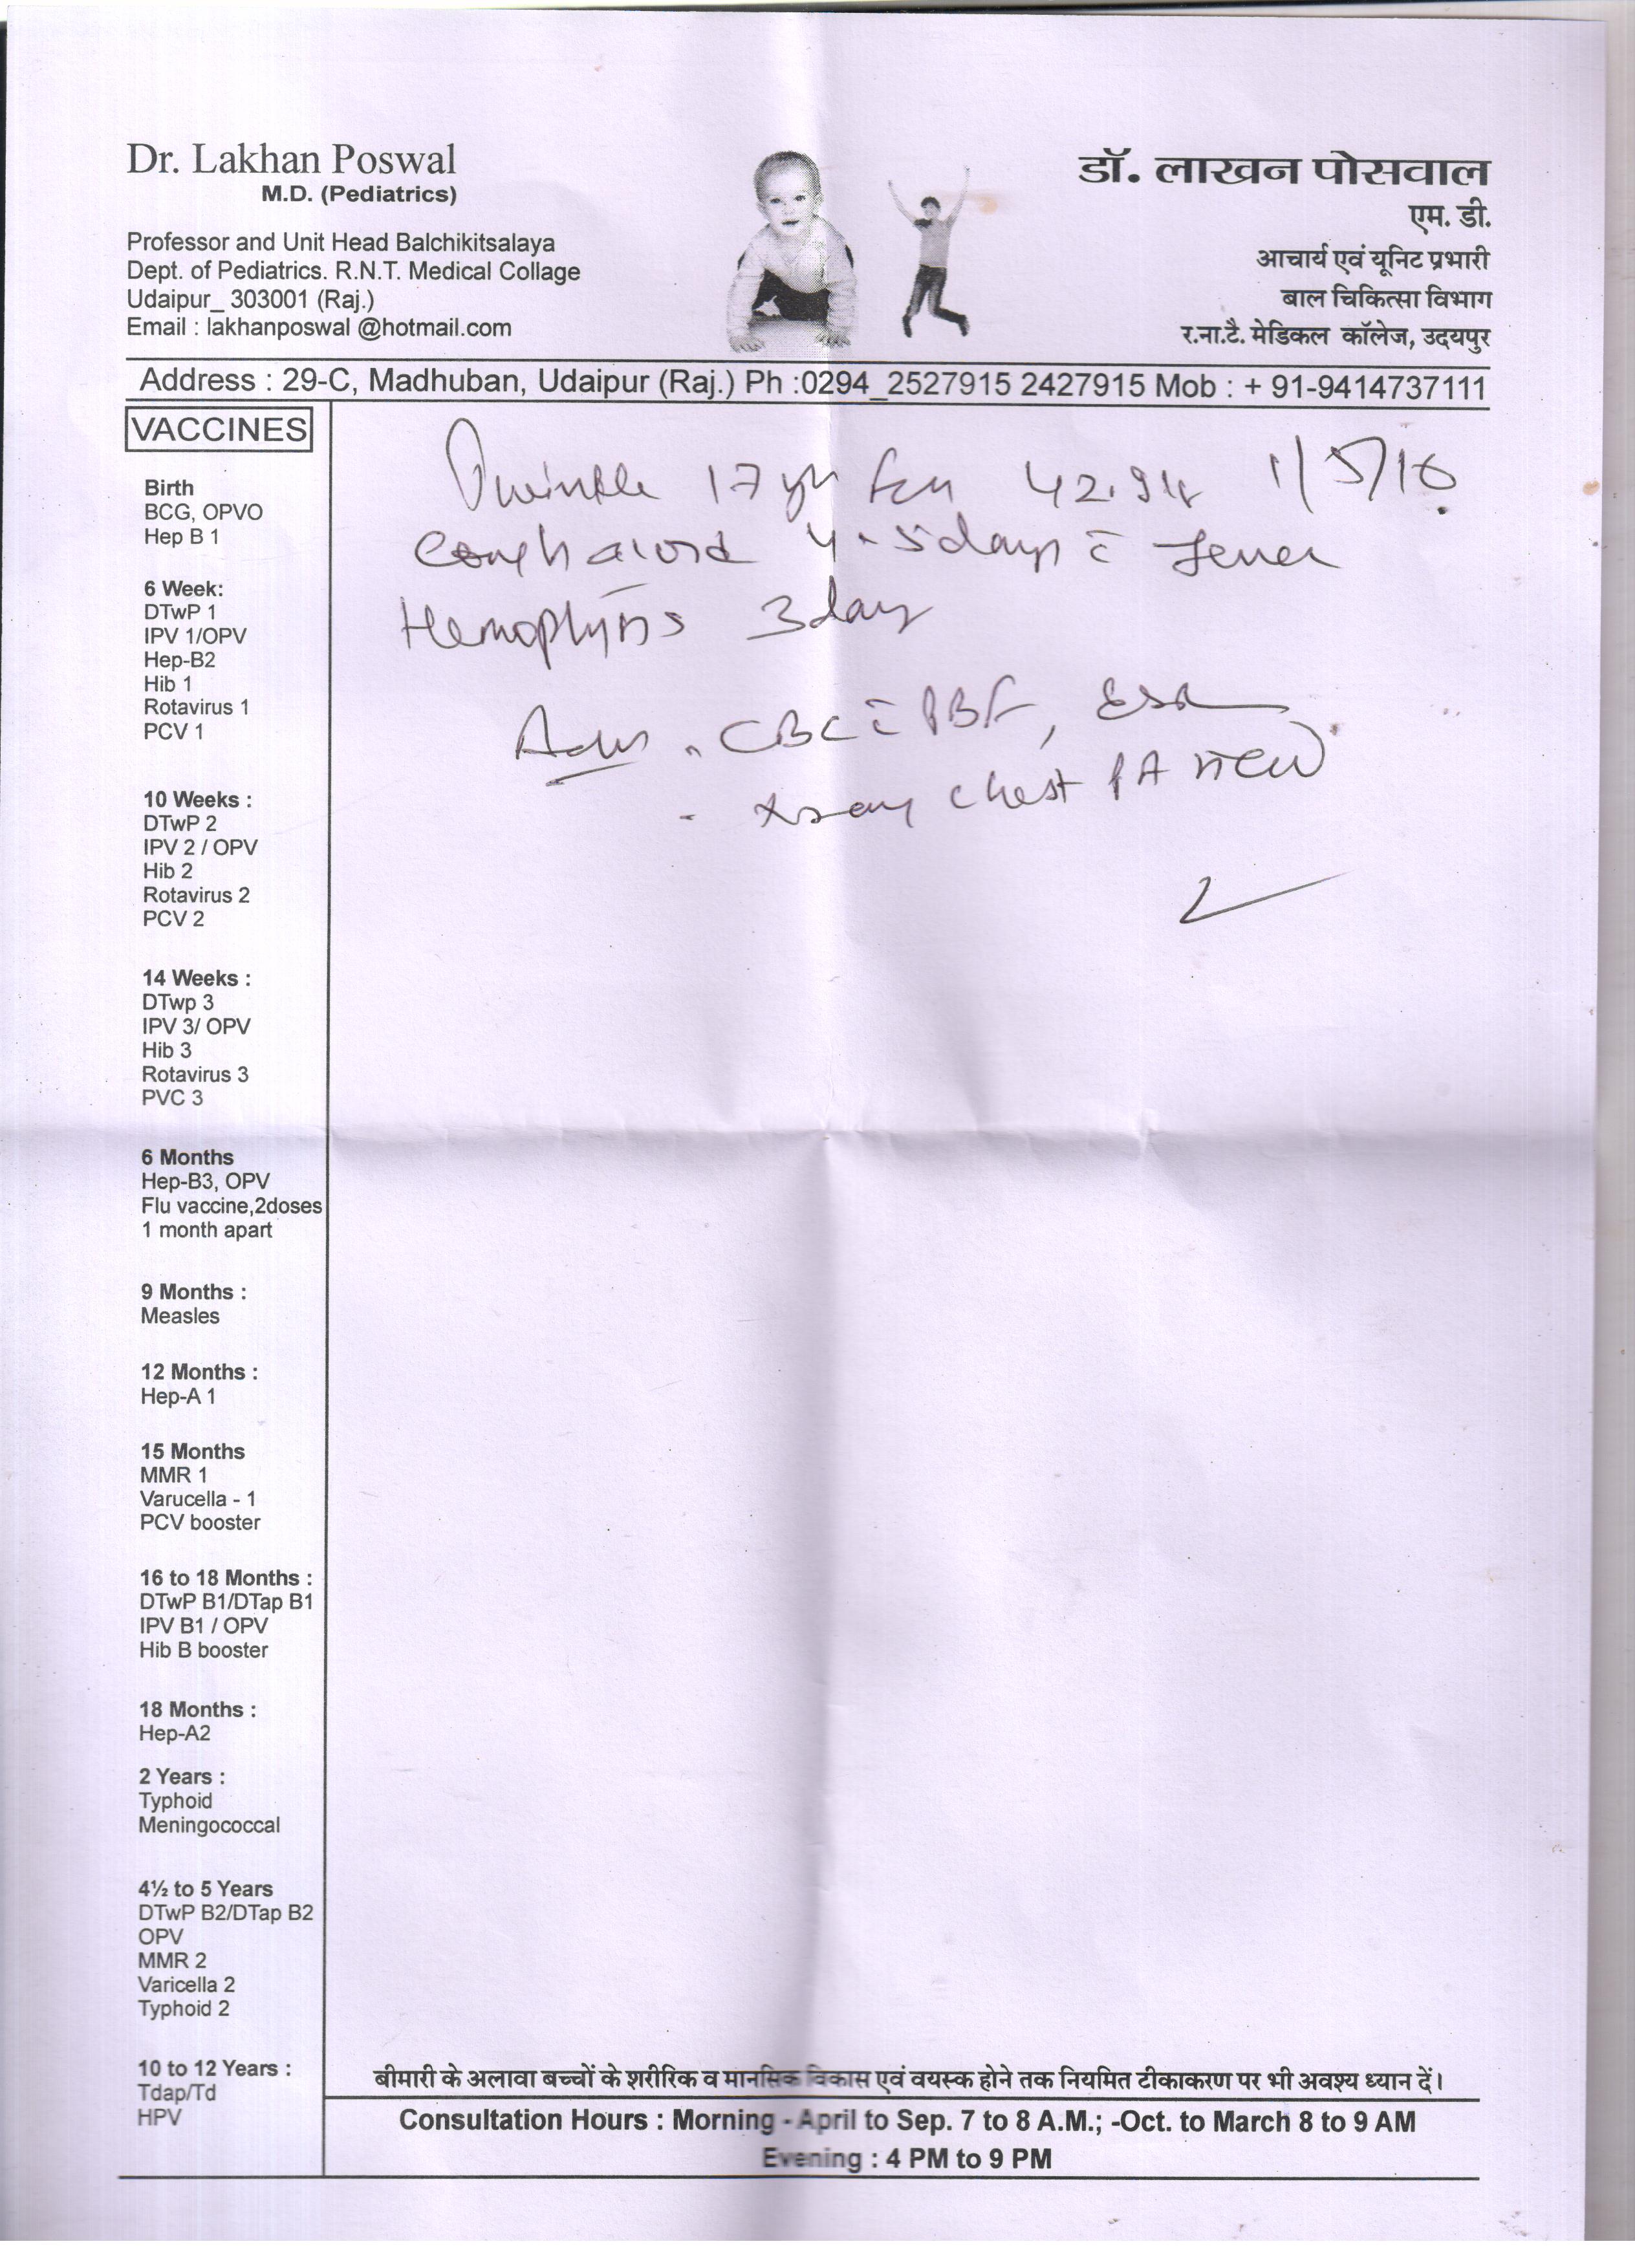 Dr. Lakhan Poswal
M.D. (Pediatrics)
Professor and Unit Head Balchikitsalaya
Dept. of Pediatrics. R.N.T. Medical Collage
Udaipur_ 303001 (Raj.)
Email : lakhanposwal @hotmail.com
डॉ. लाखन पोसवाल
एम. डी.
आचार्य एवं यूनिट प्रभारी
बाल चिकित्सा विभाग
र.ना.टै. मेडिकल कॉलेज, उदयपुर
Address : 29-C, Madhuban, Udaipur (Raj.) Ph :0294_2527915 2427915 Mob : + 91-9414737111
VACCINES
Birth
BCG, OPVO
Hep B 1
6 Week:
DTwP 1
IPV 1/OPV
Hep-B2
Hib 1
Rotavirus 1
PCV 1
10 Weeks :
DTwP 2
IPV 2 / OPV
Hib 2
Rotavirus 2
PCV 2
14 Weeks :
DTwp 3
IPV 3/ OPV
Hib 3
Rotavirus 3
PVC 3
6 Months
Hep-B3, OPV
Flu vaccine,2doses
1 month apart
9 Months :
Measles
12 Months :
Hep-A 1
15 Months
MMR 1
Varucella - 1
PCV booster
16 to 18 Months :
DTwP B1/DTap B1
IPV B1 / OPV
Hib B booster
18 Months :
Hep-A2
2 Years :
Typhoid
Meningococcal
4½ to 5 Years
DTwP B2/DTap B2
OPV
MMR 2
Varicella 2
Typhoid 2
10 to 12 Years :
Tdap/Td
HPV
Twinkle 17 yr 42.9 1/5/16
Cough 4-5 days c̄ fever
Hemoptysis 3 day
Adv. CBC c̄ PBF, ESR
- Xray chest PA view
बीमारी के अलावा बच्चों के शरीरिक व मानसिक विकास एवं वयस्क होने तक नियमित टीकाकरण पर भी अवश्य ध्यान दें।
Consultation Hours : Morning - April to Sep. 7 to 8 A.M.; -Oct. to March 8 to 9 AM
Evening : 4 PM to 9 PM